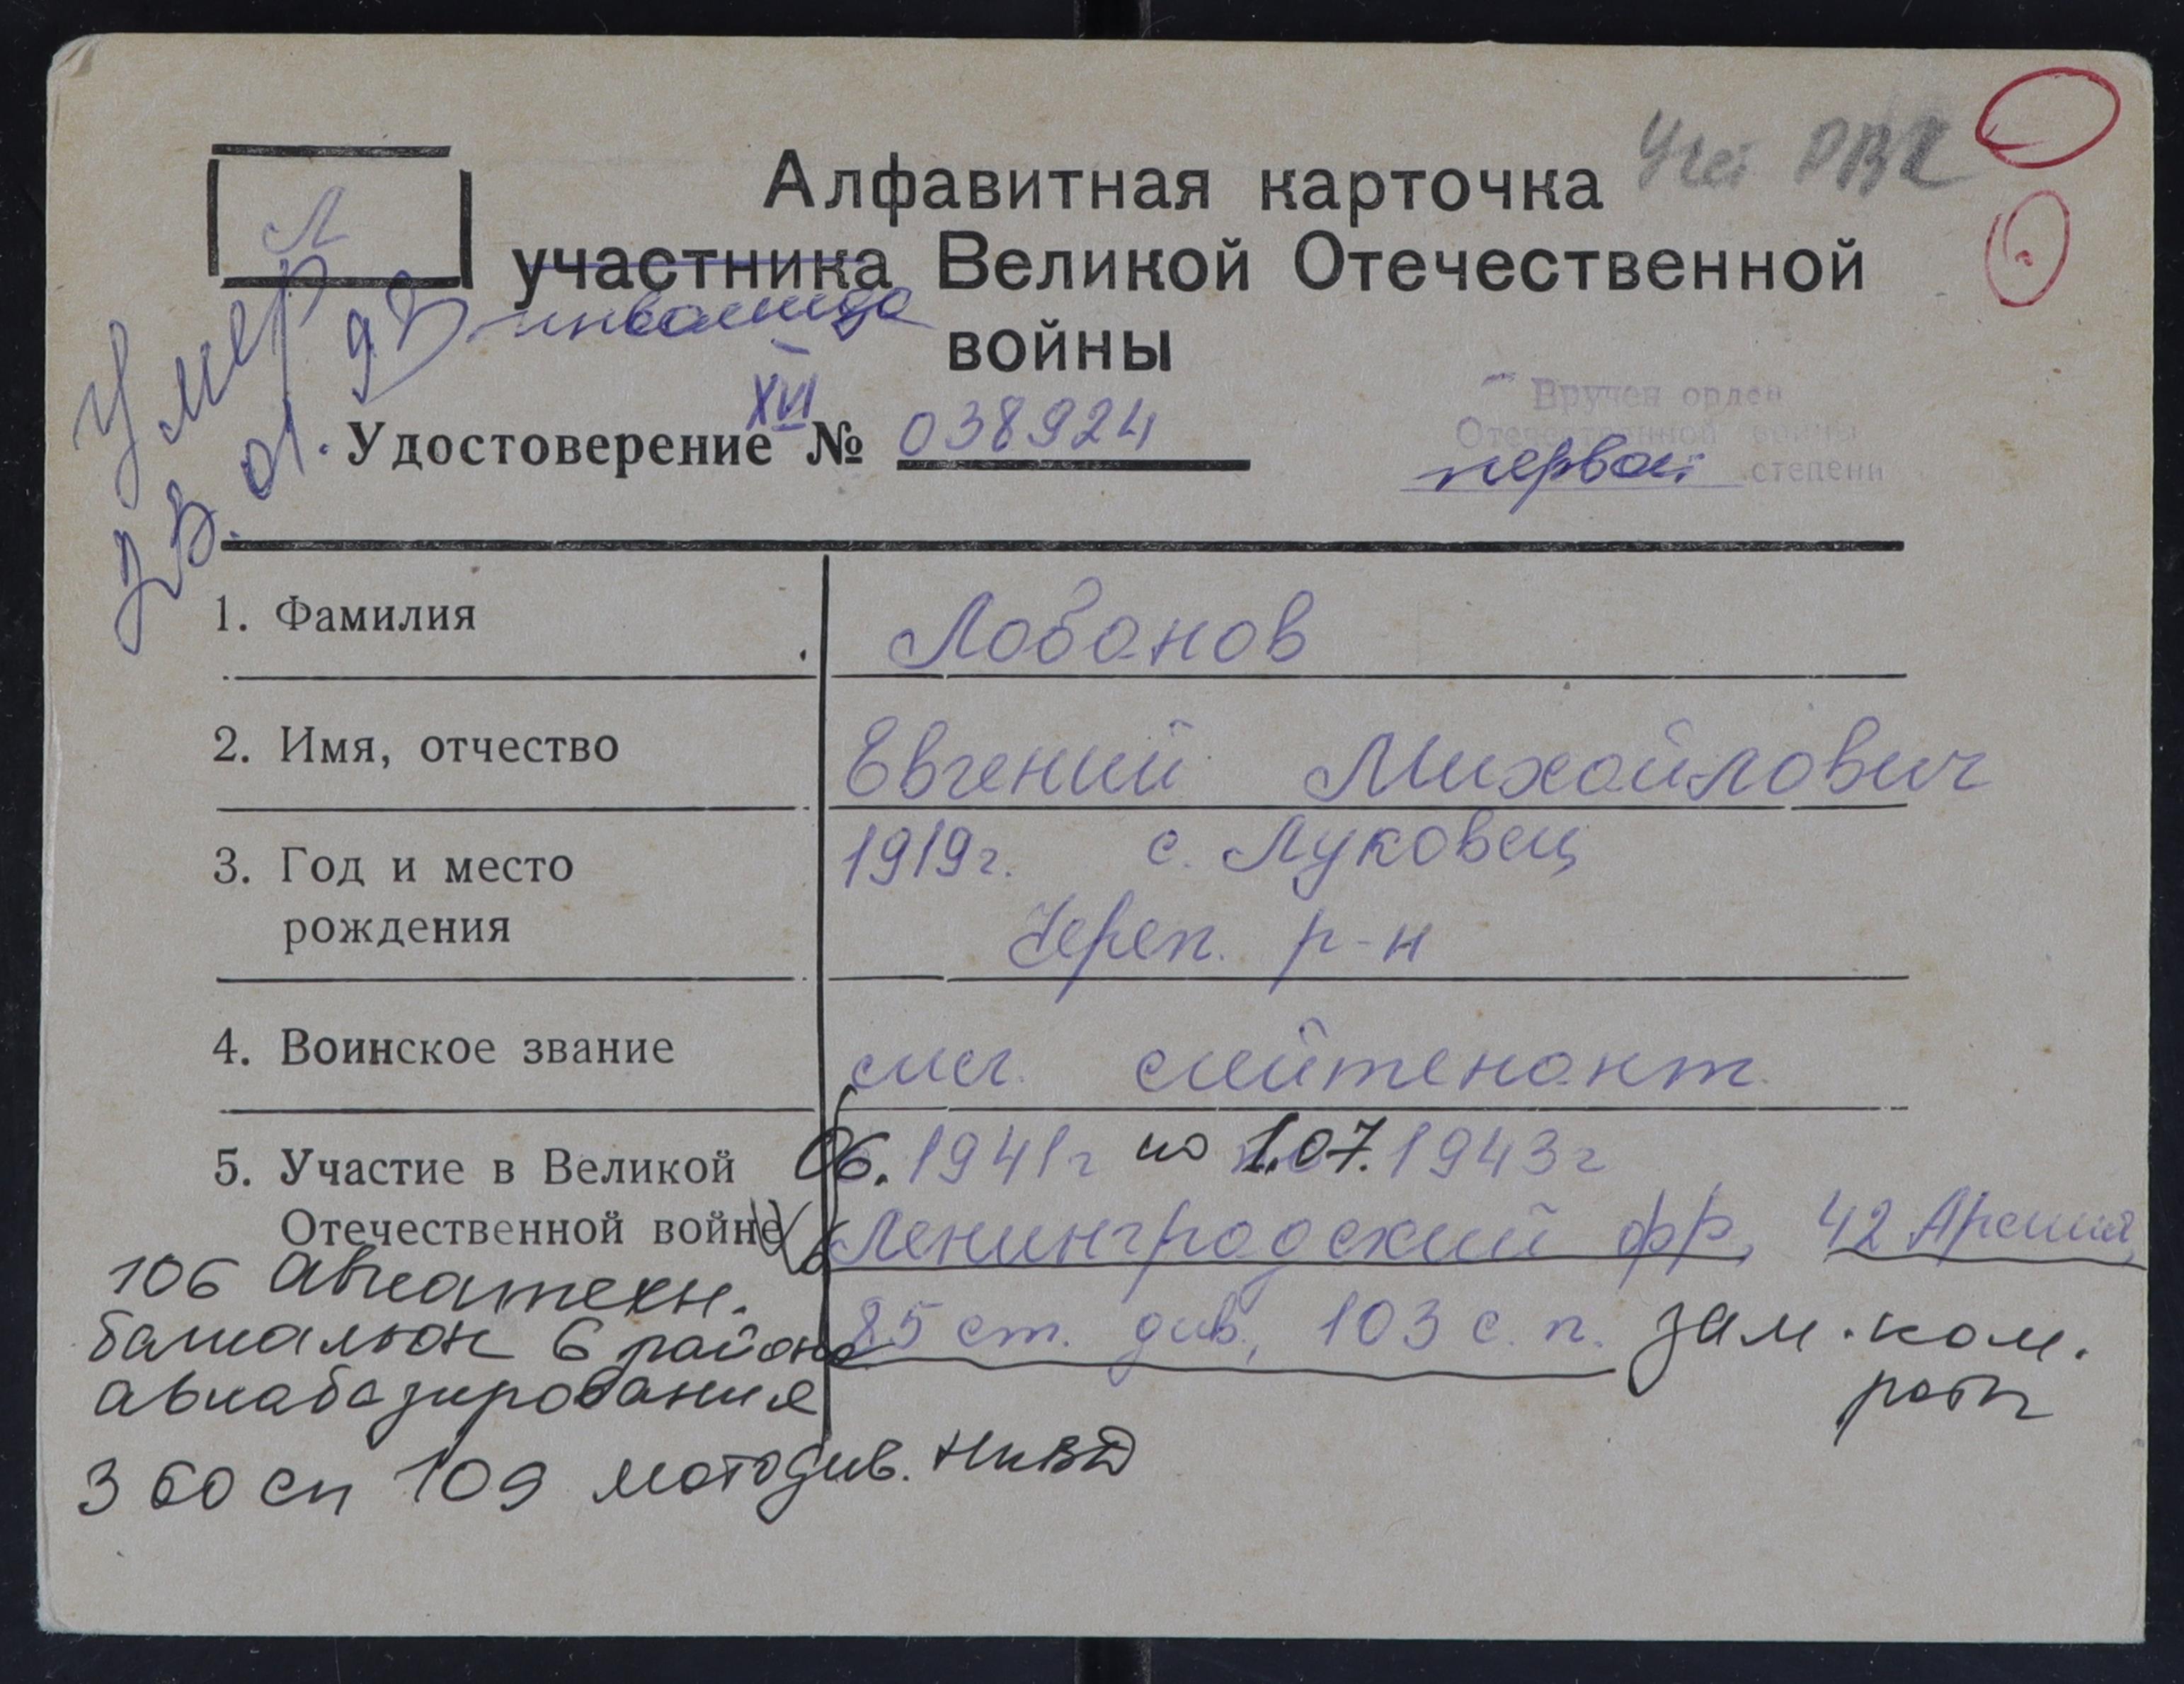 Алфавитная карточка
участника Великой Отечественной
инвалида
войны
Л
Умер
01.
XVI
Удостоверение № 038924
Вручен орден
Отечественной войны
первой степени
1. Фамилия Лобанов
2. Имя, отчество Евгений Михайлович
3. Год и место 1919г. с. Луковец
рождения Череп. р-н
4. Воинское звание мл. лейтенант
5. Участие в Великой 06.1941г по 1.07.1943г
Отечественной войне Ленинградский фр, 42 Армия,
106 авиатехн.
батальон 6 района
авиабазирования
85 ст. див., 103 с. п. зам. ком.
роты
360 сп 109 мотодив. НКВД